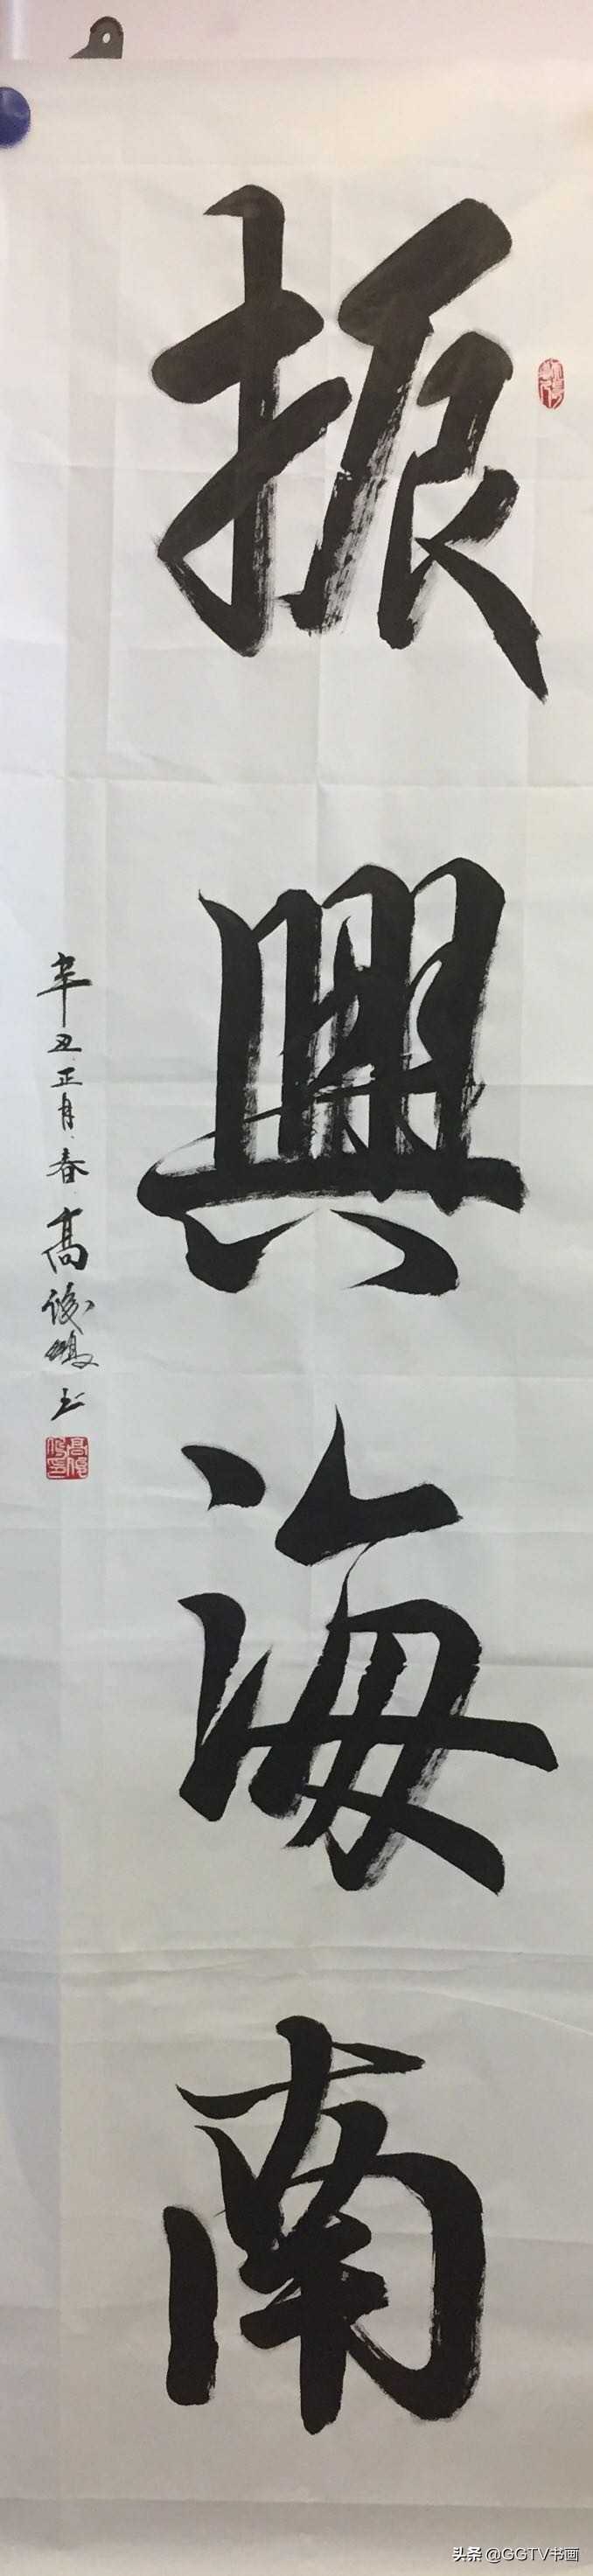 振興海南
辛丑正月春高俊鴻书
头条 @GGTV书画